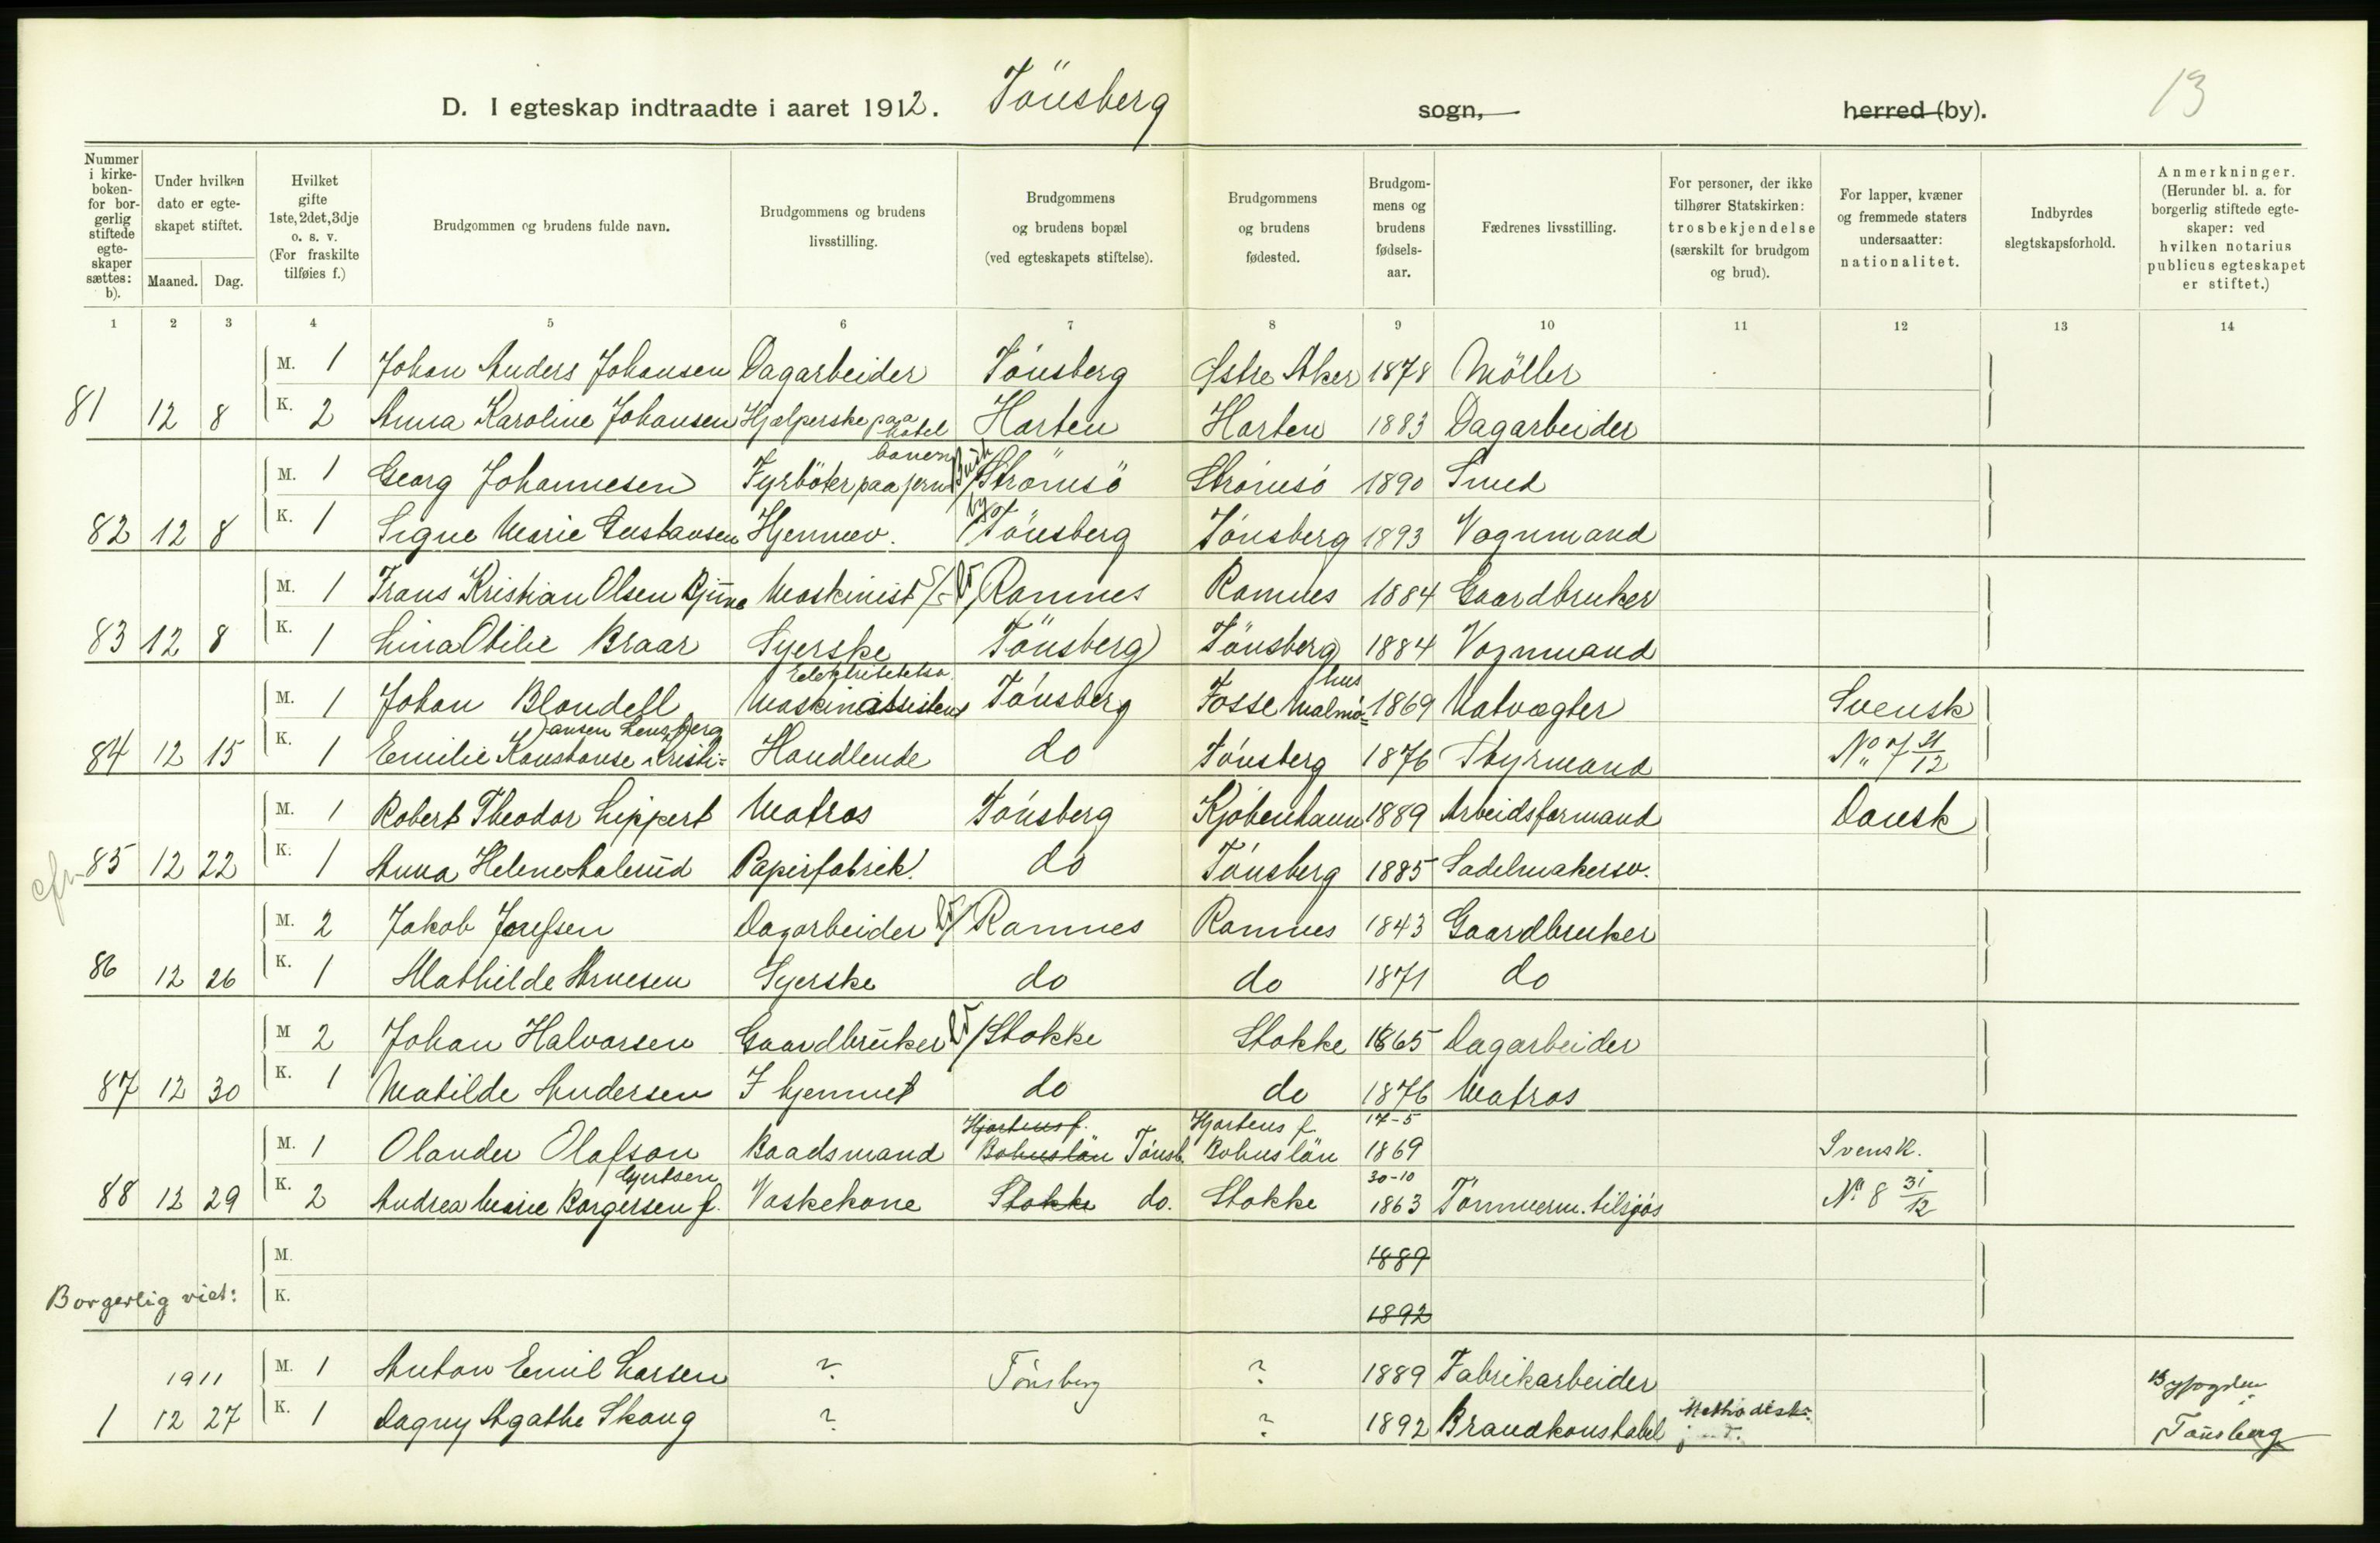 D. I egteskap indtraadte i aaret 1912. Tönsberg sogn, herred (by). 13
Nummer i kirkeboken- for borgerlig stiftede egteskaper sættes: b).
Under hvilken dato er egteskapet stiftet.
Maaned. Dag.
Hvilket gifte 1ste, 2det, 3dje o. s. v. (For fraskilte tilføies f.)
Brudgommen og brudens fulde navn.
Brudgommens og brudens livsstilling.
Brudgommens og brudens bopæl (ved egteskapets stiftelse).
Brudgommens og brudens fødested.
Brudgommens og brudens fødselsaar.
Fædrenes livsstilling.
For personer, der ikke tilhører Statskirken: trosbekjendelse (særskilt for brudgom og brud).
For lapper, kvæner og fremmede staters undersaatter: nationalitet.
Indbyrdes slegtskapsforhold.
Anmerkninger. (Herunder bl. a. for borgerlig stiftede egteskaper: ved hvilken notarius publicus egteskapet er stiftet.)
1 2 3 4 5 6 7 8 9 10 11 12 13 14
M. 1 Johan Anders Johansen Dagarbeider Tönsberg Östre Aker 1878 Möller
81 12 8 K. 2 Anna Karoline Johansen Hjælperske paa hotel Horten Horten 1883 Dagarbeider
M. 1 Georg Johannesen Fyrböter paa jernbanen Strömsö Strömsö 1890 Smed
82 12 8 K. 1 Signe Marie Gustavsen Hjemmev. Tönsberg Tönsberg 1893 Vognmand
M. 1 Frans Kristian Olsen Bjune Maskinist S/S Ramnes Ramnes 1884 Gaardbruker
83 12 8 K. 1 Lina Otilie Braar Syerske Tönsberg Tönsberg 1884 Vognmand
M. 1 Johan Blondell Maskinassistent Elektricitetsv. Tönsberg Fosse Malmöhus 1869 Natvægter Svensk
84 12 15 K. 1 Emilie Konstanse Kristiansen Lensberg Handlende do Tönsberg 1876 Styrmand No. 7 31/12
M. 1 Robert Theodor Lippert Matros Tönsberg Kjöbenhavn 1889 Arbeidsformand Dansk
cfr 85 12 22 K. 1 Anna Helene Aalerud Papirfabrik. do Tönsberg 1885 Sadelmakersv.
M. 2 Jakob Josefsen Dagarbeider Ramnes Ramnes 1843 Gaardbruker
86 12 26 K. 1 Mathilde Arnesen Syerske do do 1871 do
M 2 Johan Halvorsen Gaardbruker Stokke Stokke 1865 Dagarbeider
87 12 30 K. 1 Matilde Andersen I hjemmet do do 1876 Matros
M. 1 Olander Olafson Baadsmand Hjortens f. Bohuslän Tönsb. Hjortens f. Bohuslän 17-5 1869 Svensk.
88 12 29 K. 2 Andrea Marie Borgersen f. Gjertsen Vaskekone Stokke do. Stokke 30-10 1863 Tömmerm. tilsjös No. 8 31/12
M. 1889
Borgerlig viet: K. 1892
1911 M. 1 Anton Emil Larsen ? Tönsberg ? 1889 Fabrikarbeider Byfogden
1 12 27 K. 1 Dagny Agathe Skaug ? ? 1892 Brandkonstabel Methodisk Tönsberg